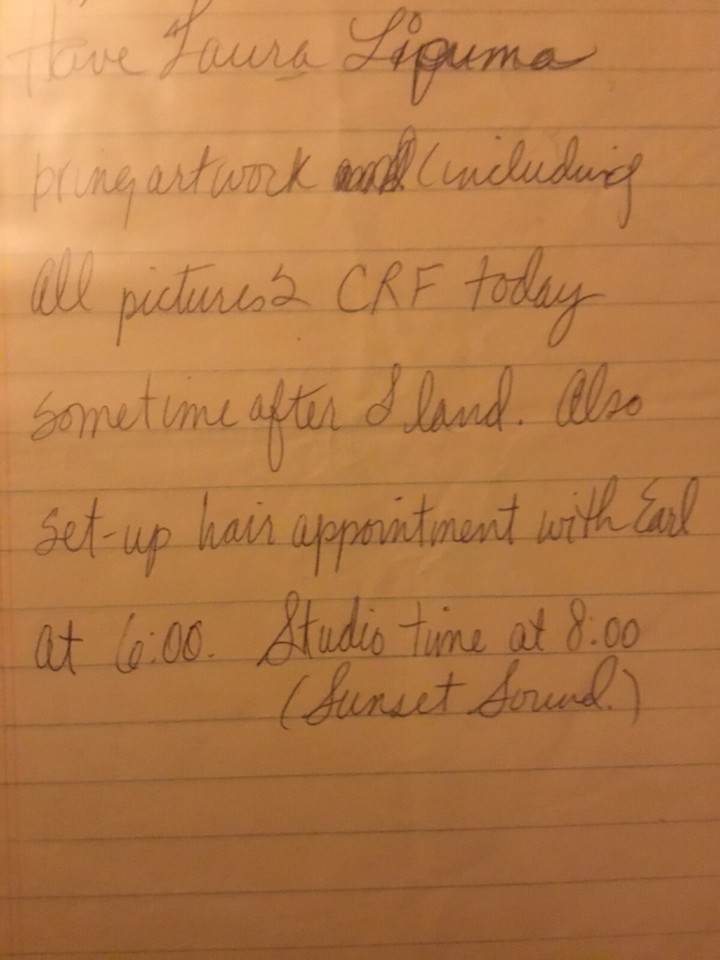 Have Laura Liguma
bring artwork (including
All pictures 2 CRF today
sometime after I land. Also
set-up hair appointment with Earl
at 6:00. Studio time at 8:00
(Sunset Sound.)